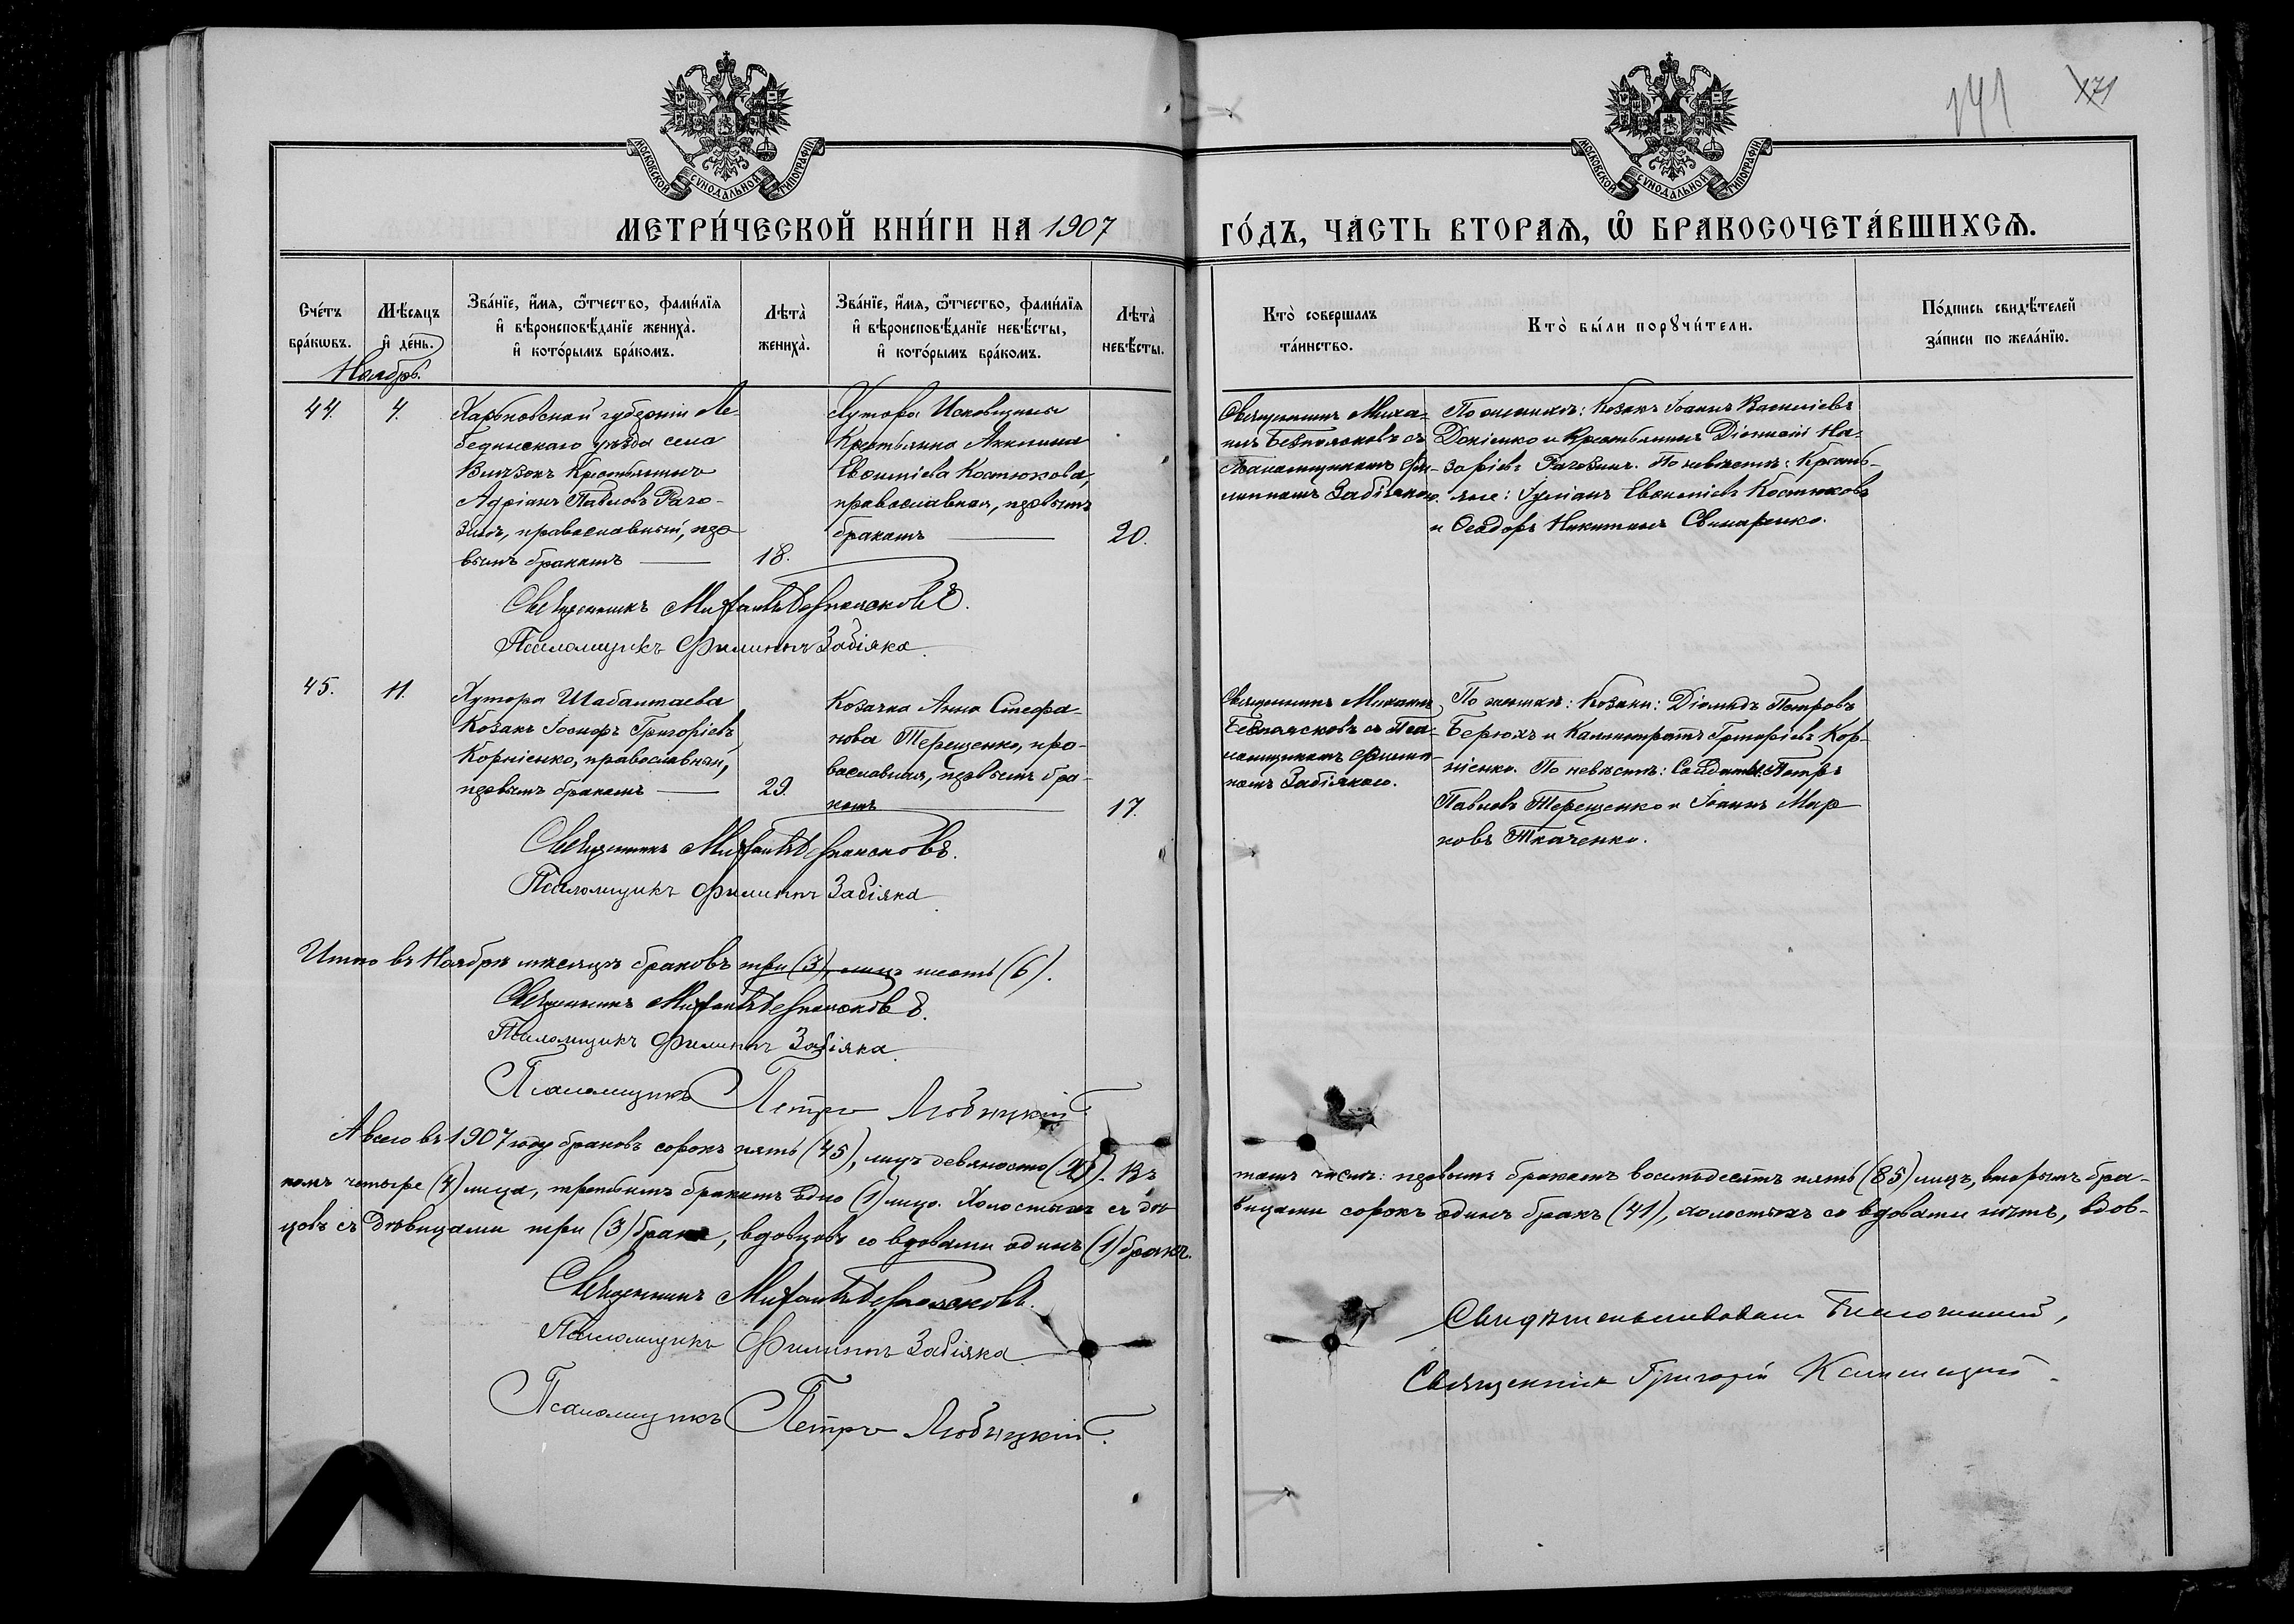 141 171
МОСКОВСКОЙ СУНОДАЛЬНОЙ ТИПОГРАФІИ
МОСКОВСКОЙ СУНОДАЛЬНОЙ ТИПОГРАФІИ
МЕТРИ́ЧЕСКОЙ КНИ́ГИ НА 1907
ГО́ДЪ, ЧА́СТЬ ВТОРАѦ, Ѡ҆ БРАКОСОЧЕТА́ВШИХСѦ.
Сче́тъ
бра́кѡвъ.
Мѣ́сяцъ
и҆ де́нь.
Ноябрь.
Зва́нїе, и҆́мя, ѻ҆́тчество, фами́лїя
и҆ вѣроисповѣ́данїе жениха̀.
и҆ кото́рымъ бра́комъ.
Лѣта̀
жениха̀.
Зва́нїе, и҆́мя, ѻ҆́тчество, фами́лїя
и҆ вѣроисповѣ́данїе невѣ́сты,
и҆ кото́рымъ бра́комъ.
Лѣта̀
невѣ́сты.
Кто̀ совершалъ
та́инство.
Кто̀ бы́ли порꙋчи́тели.
По́дпись свидѣ́телей
за́писи по жела́нїю.
44.
4.
Харьковской губерніи Ле-
бединскаго уѣзда села
Крестьянинъ
Адріанъ Павловъ Раго-
зинъ, православный, пер-
вымъ бракомъ
18.
Хутора
Крестьянка Акилина
Евѳиміева Костюкова,
православная, первымъ
бракомъ
20.
Священникъ Миха-
илъ Безпоясковъ съ
Псаломщикомъ Фи-
липпомъ Забіякою.
По женихѣ: Козакъ Іоаннъ Василіевъ
Доніенко и Крестьянинъ Діонисій На-
заріевъ Рагозинъ. По невѣстѣ: Кресть-
яне: Іуліанъ Евѳиміевъ Костюковъ
и Ѳеодоръ Никитинъ Свинаренко.
Священникъ Михаилъ Безпоясковъ.
Псаломщикъ Филиппъ Забіяка.
45.
11.
Хутора Шабалтаева
Козакъ Іосифъ Григоріевъ
Корніенко, православный,
первымъ бракомъ
29.
Козачка Анна Стефа-
нова Терещенко, пра-
вославная, первымъ бра-
комъ
17.
Священникъ Михаилъ
Безпоясковъ съ Пса-
ломщикомъ Филип-
помъ Забіякою.
По женихѣ: Козаки: Діомидъ Петровъ
Берюхъ и Каллистратъ Григоріевъ Кор-
ніенко. По невѣстѣ: Солдаты: Петръ
Павловъ Терещенко и Іоаннъ Мар-
ковъ Ткаченко.
Священникъ Михаилъ Безпоясковъ.
Псаломщикъ Филиппъ Забіяка
Итого въ Ноябрѣ мѣсяцѣ браковъ три (3), лицъ шесть (6).
Священникъ Михаилъ Безпоясковъ.
Псаломщикъ Филиппъ Забіяка.
Псаломщикъ Петръ Любицкій.
А всего въ 1907 году браковъ сорокъ пять (45), лицъ девяносто (90). Въ
томъ числѣ: первымъ бракомъ восемьдесятъ пять (85) лицъ, вторымъ бра-
комъ четыре (4) лица, третьимъ бракомъ одно (1) лицо. Холостыхъ съ дѣ-
вицами сорокъ одинъ бракъ (41), холостыхъ со вдовами нѣтъ, вдов-
цовъ съ дѣвицами три (3) брака, вдовцовъ со вдовами одинъ (1) бракъ.
Священникъ Михаилъ Безпоясковъ.
Псаломщикъ Филиппъ Забіяка.
Псаломщикъ Петръ Любицкій.
Свидѣтельствовалъ Благочинный,
Священникъ Григорій